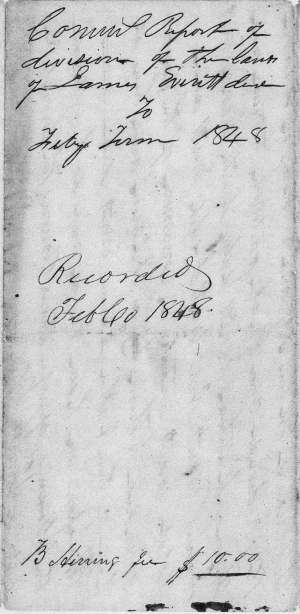 Commrs Report of
division of the land
of James Everitt decd
To
Feby Term 1848
Recorded
Feb 1848
B fee $10.00